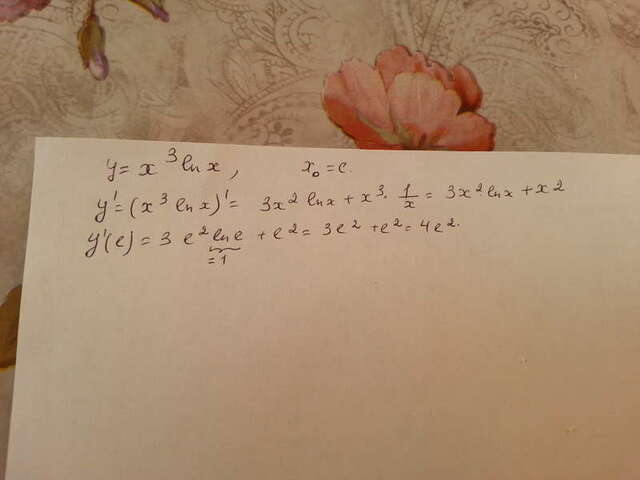 y = x³ ln x, x₀ = e.
y' = (x³ ln x)' = 3x² ln x + x³ · 1/x = 3x² · ln x + x²
y'(e) = 3 e² ln e + e² = 3e² + e² = 4e².
= 1